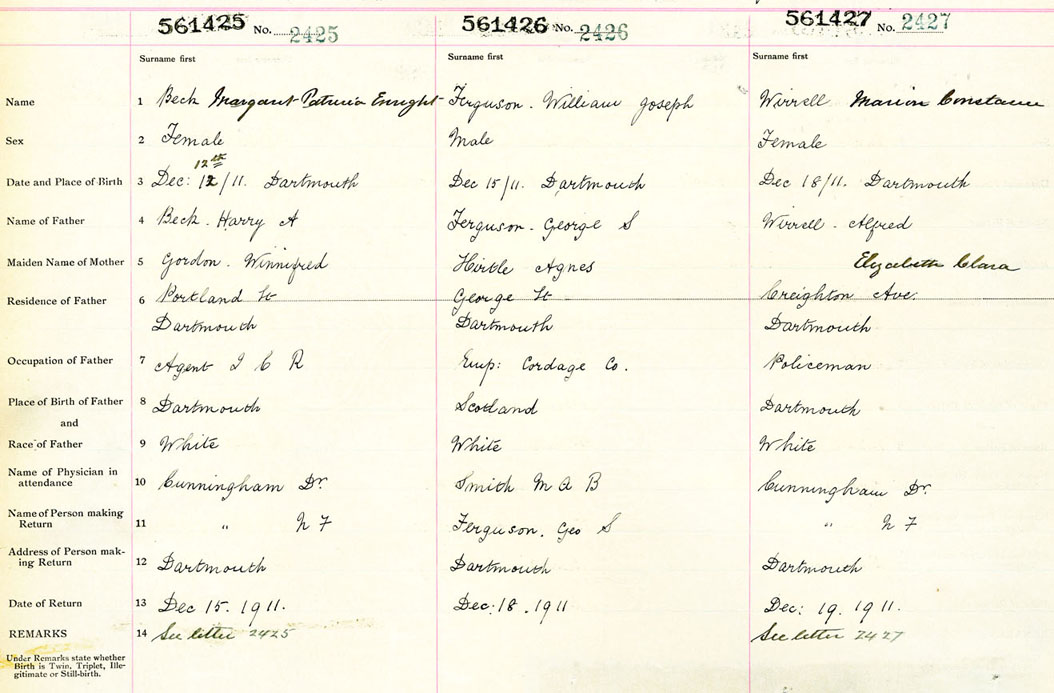 561425 No. 2425 561426 No. 2426 561427 No. 2427
Surname first Surname first Surname first
Name 1 Beck Margaret Patricia Enright Ferguson. William Joseph Wirrell Marion Constance
Sex 2 Female Male Female
12th
Date and Place of Birth 3 Dec: 12/11. Dartmouth Dec 15/11. Dartmouth Dec 18/11. Dartmouth
Name of Father 4 Beck. Harry A Ferguson. George S Wirrell. Alfred
Maiden Name of Mother 5 Gordon. Winnifred Hirtle Agnes Elizabeth Clara
Residence of Father 6 Portland St George St Creighton Ave.
Dartmouth Dartmouth Dartmouth
Occupation of Father 7 Agent I C R Emp: Cordage Co. Policeman
Place of Birth of Father 8 Dartmouth Scotland Dartmouth
and
Race of Father 9 White White White
Name of Physician in
attendance 10 Cunningham Dr. Smith M A B Cunningham Dr.
Name of Person making
Return 11 " N F Ferguson. Geo S " N F
Address of Person mak-
ing Return 12 Dartmouth Dartmouth Dartmouth
Date of Return 13 Dec 15. 1911. Dec: 18. 1911 Dec: 19. 1911.
REMARKS 14 See letter 2425 See letter 2427
Under Remarks state whether
Birth is Twin, Triplet, Ille-
gitimate or Still-birth.